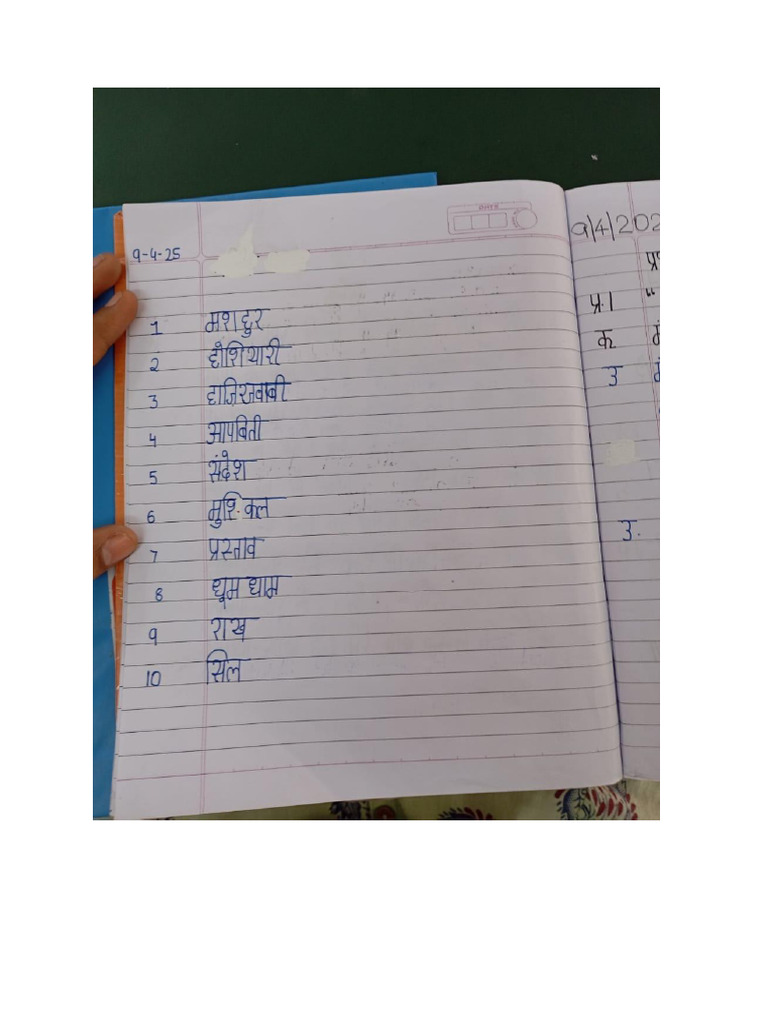 DATE
9-4-25
1 मशहुर
2 होशियारी
3 हाज़िरजवाबी
4 आपबिती
5 संदेश
6 मुश्किल
7 प्रस्ताव
8 धूम धाम
9 राख
10 सिल
9/4/202
प्र.1 “
क
उ
उ.